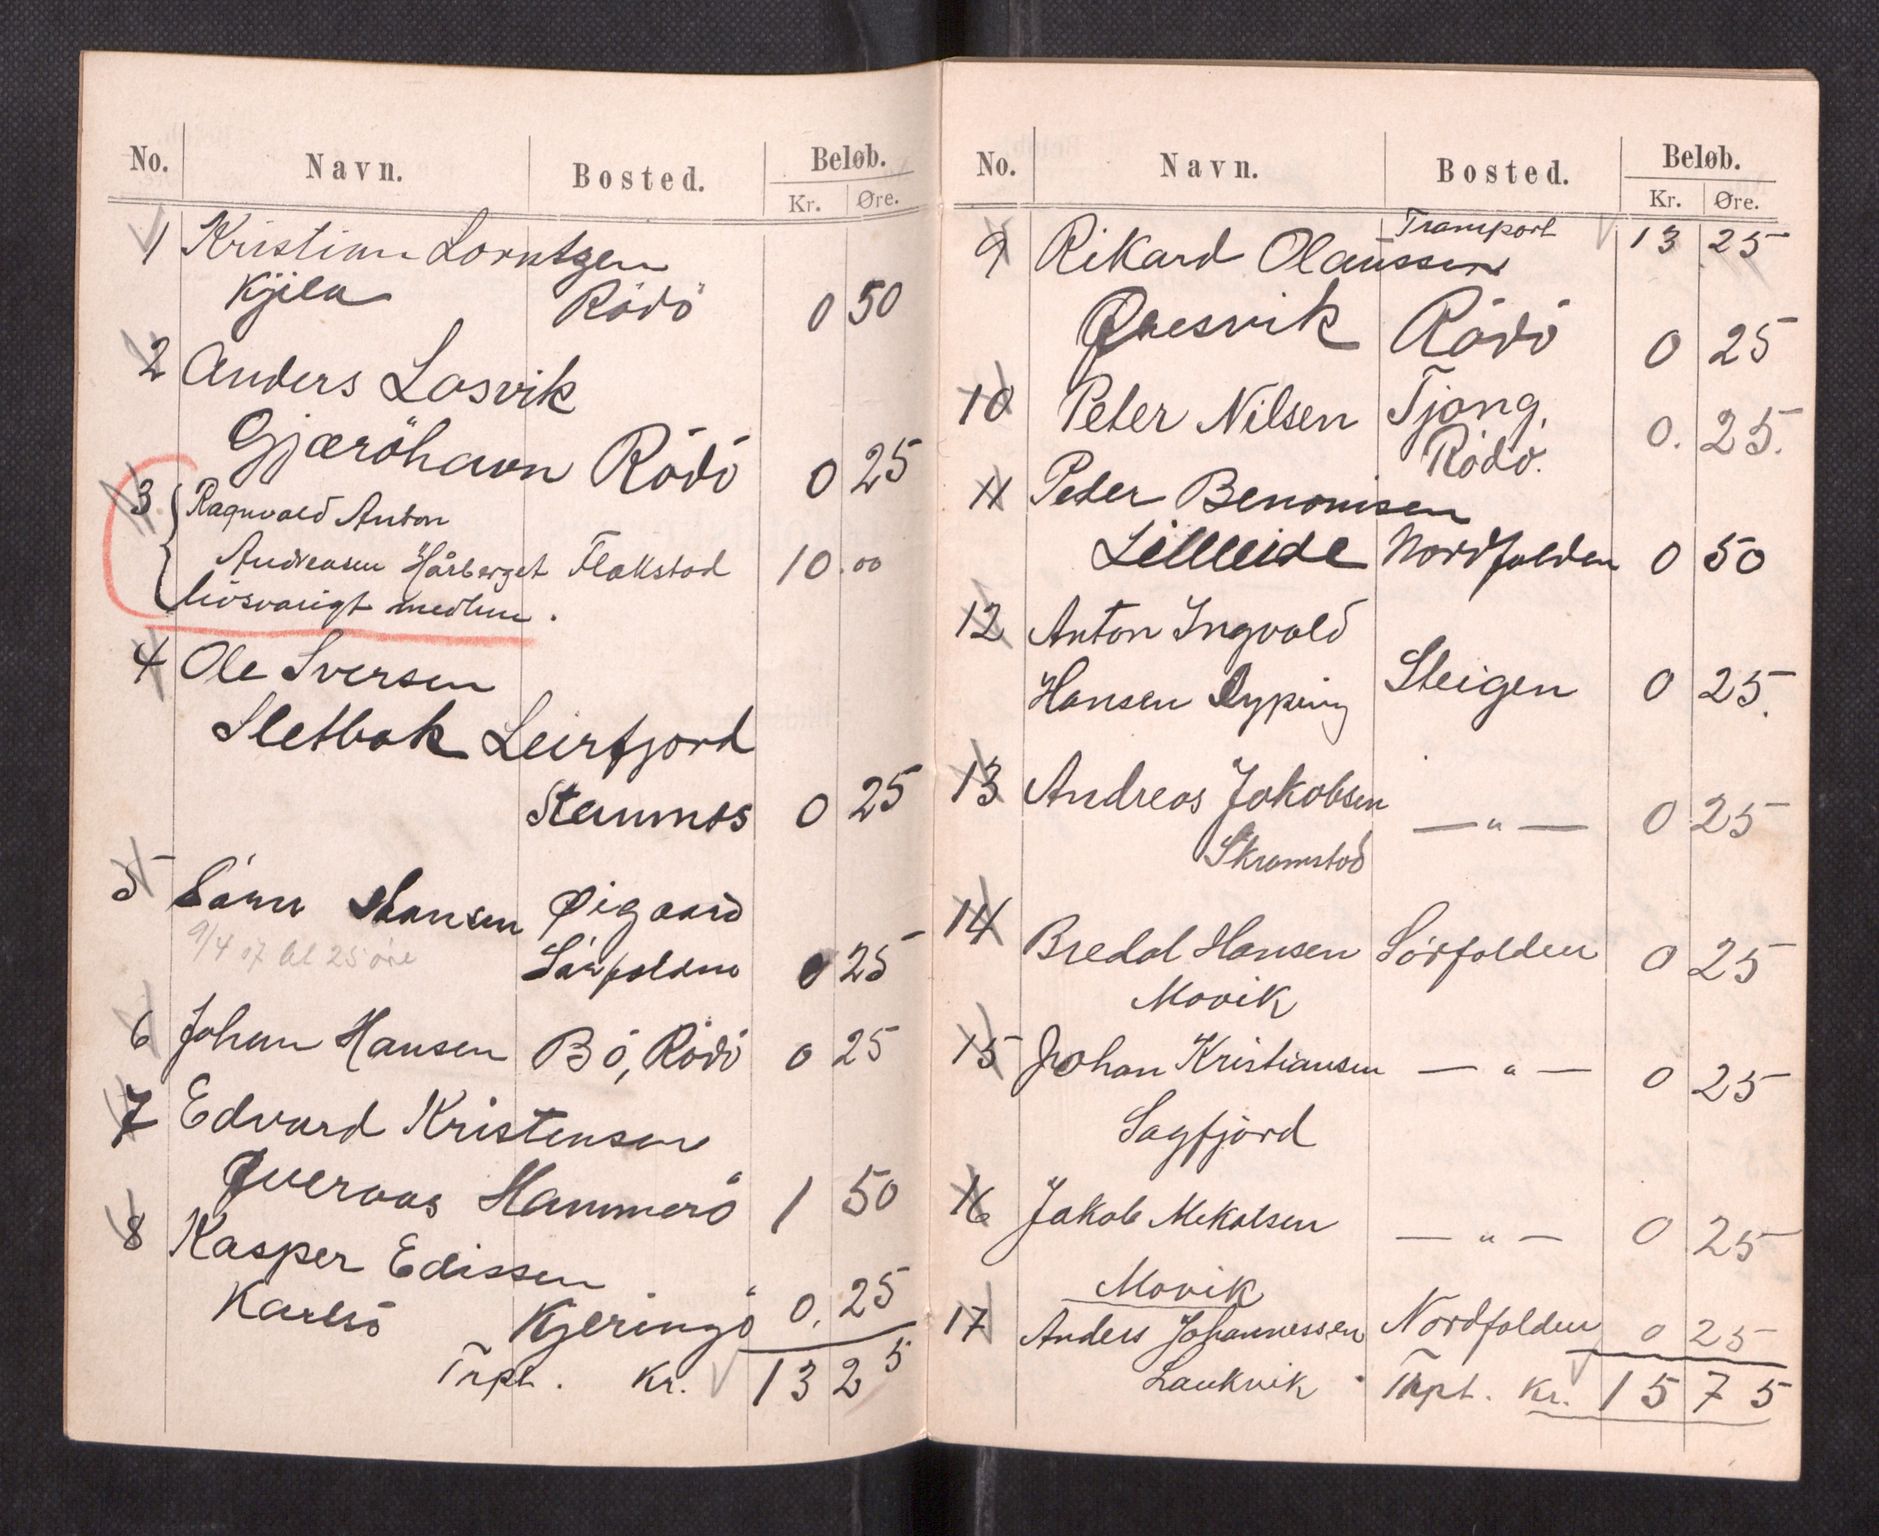 No. Navn. Bosted. Beløb.
Kr. Øre.
1 Kristian Lorntzen
Kjila Rödö 0 50
2 Anders Losvik
Gjæröhavn Rödö 0 25
3 Ragnvald Anton
Andreasen Hårberget Flakstad 10.00
livsvarigt medlem.
4 Ole Iversen
Sletbak Leirfjord
Stamnes 0 25
5 Hansen Øigaard
9/4 07 bl 25 øre
Sörfolden 0 25
6 Johan Hansen Bö, Rödö 0 25
7 Edvard Kristensen
Hammerö 1 50
8 Kasper Edissen
Karlsö Kjeringö 0, 25
Trpt. Kr. 13 25
No. Navn. Bosted. Beløb.
Kr. Øre.
Transport 13 25
9 Rikard Olaussen
Rödö 0 25
10 Peter Nilsen Tjong, 0. 25.
Rödö.
11 Peder Benonisen
Lilleeide Nordfolden 0 50
12 Anton Ingvald
Hansen Dyping Steigen 0 25.
13 Andreas Jakobsen — " — 0 25
Skramstad
14
Bredal Hansen Sörfolden 0 25
Movik
15 Johan Kristiansen — " — 0 25
Sagfjord
16 Jakob Mikalsen — " — 0 25
Movik
17 Anders Johannessen Nordfolden 0 25
Laukvik Trpt. Kr. 15 75